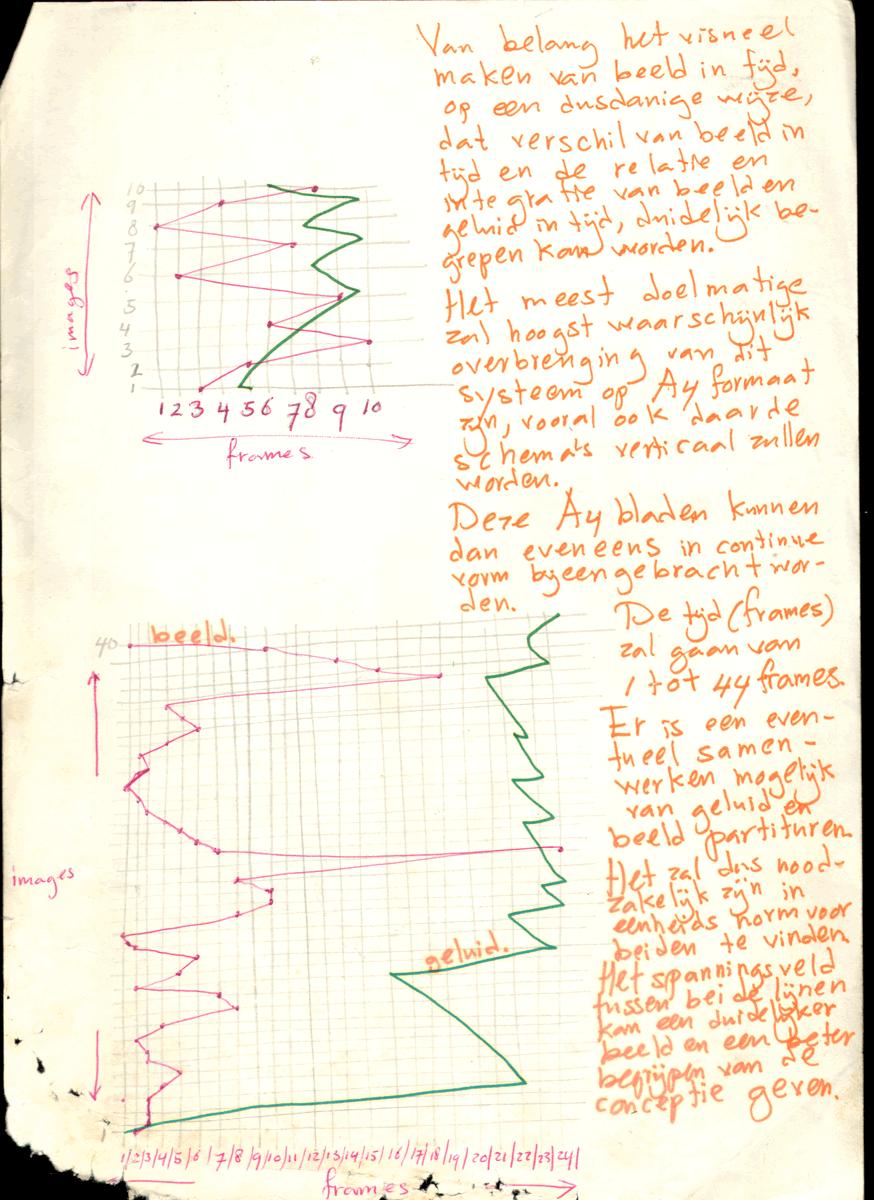 Van belang het visueel
maken van beeld in tijd,
op een dusdanige wijze,
dat verschil van beeld in
tijd en de relatie en
integratie van beeld en
geluid in tijd, duidelijk be-
grepen kan worden.
Het meest doelmatige
zal hoogst waarschijnlijk
overbrenging van dit
systeem op A4 formaat
zijn, vooral ook daar de
schema's verticaal zullen
worden.
Deze A4 bladen kunnen
dan eveneens in continue
vorm bijeengebracht wor-
den.
De tijd (frames)
zal gaan van
1 tot 44 frames.
Er is een even-
tueel samen-
werken mogelijk
van geluid en
beeld partituren.
Het zal dus nood-
zakelijk zijn in
eenheids norm voor
beiden te vinden.
Het spanningsveld
tussen beide lijnen
kan een duidelijker
beeld en een beter
begrijpen van de
conceptie geven.
images
10
9
8
7
6
5
4
3
2
1
1 2 3 4 5 6 7 8 9 10
frames
40
beeld.
images
geluid.
1
1/2/3/4/5/6/7/8/9/10/11/12/13/14/15/16/17/18/19/20/21/22/23/24/
frames